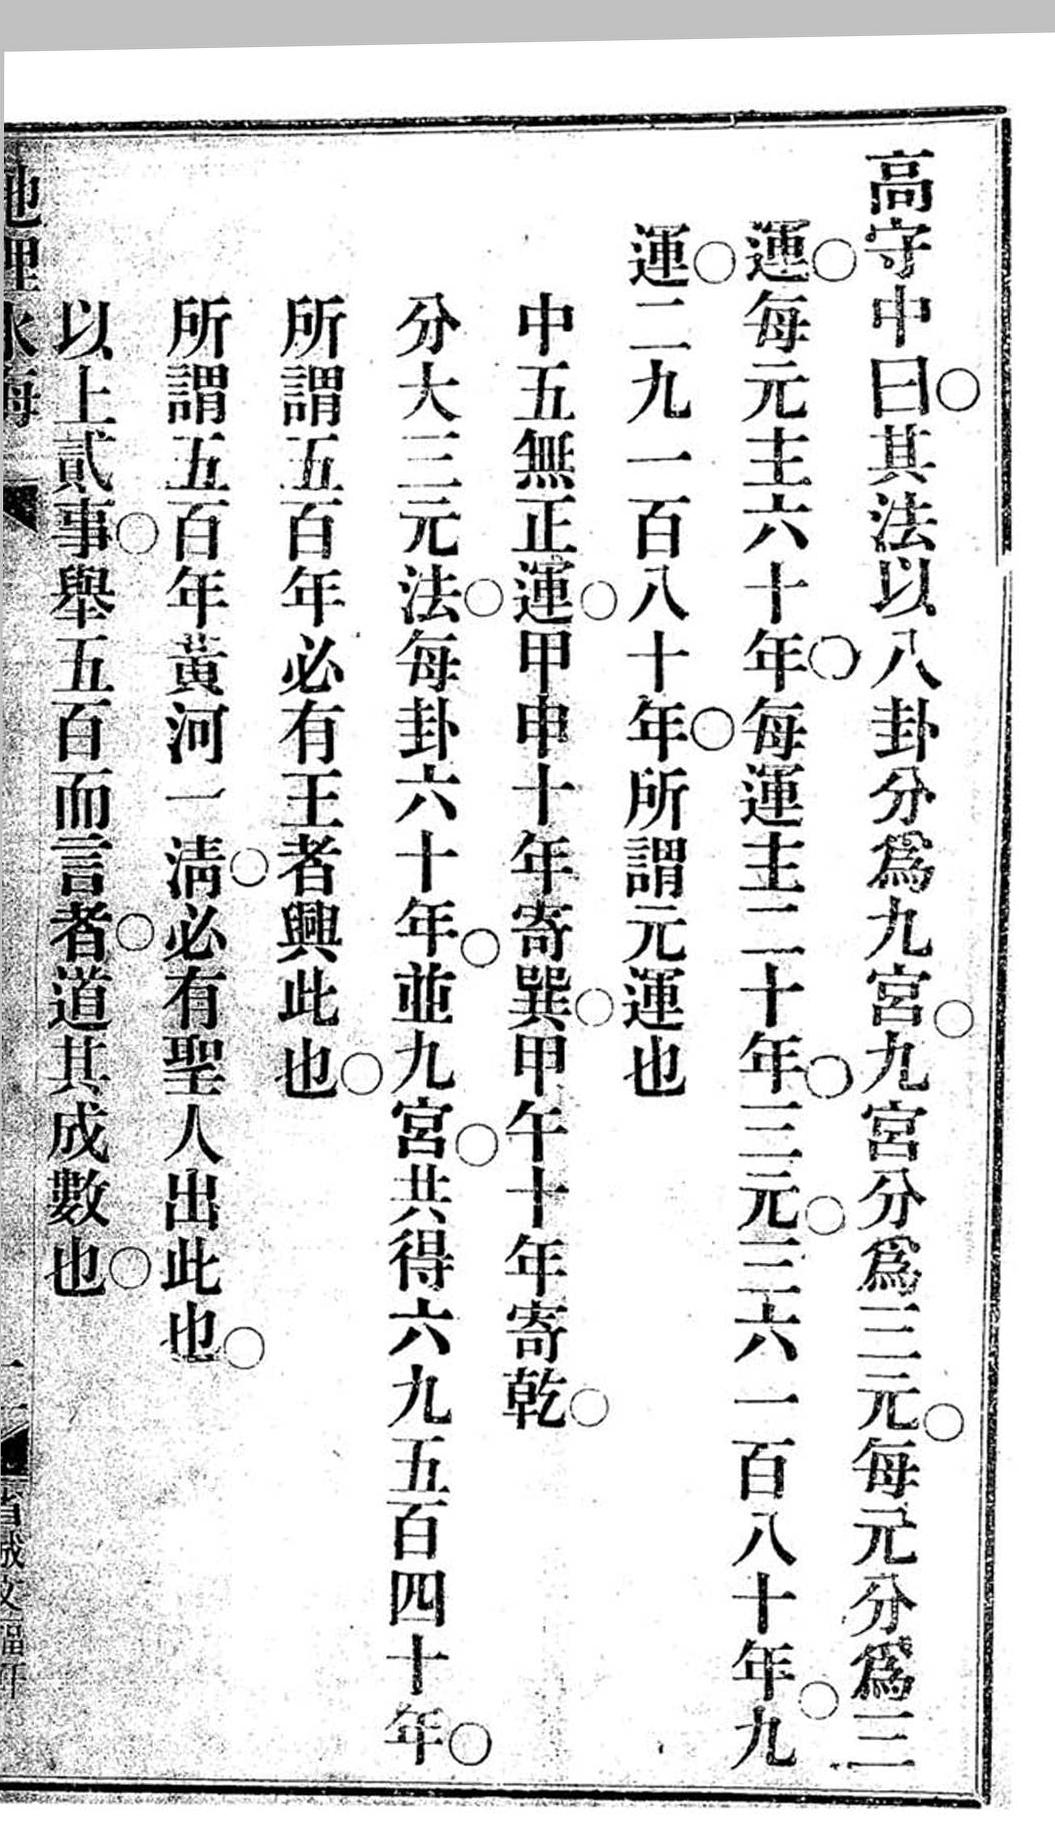 高守中曰○其法以八卦分爲九宮○九宮分爲三元○每元分爲三
運○每元主六十年○每運主二十年○三元○三六一百八十年○九
運○二九一百八十年○所謂元運也
中五無正運○甲申十年寄巽○甲午十年寄乾○
分大三元法○每卦六十年○並九宮○共得六九五百四十年○
所謂五百年必有王者興此也○
所謂五百年黃河一淸○必有聖人出此也○
以上貳事○舉五百而言者○道其成數也○
地理水海
省城文福軒